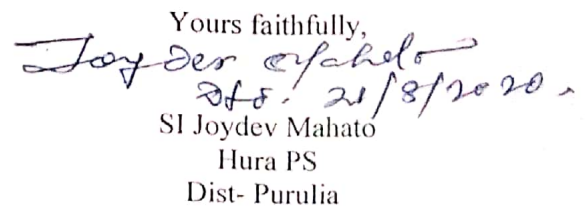 Yours faithfully,
Joydev Mahato
21/8/2020.
SI Joydev Mahato
Hura PS
Dist- Purulia